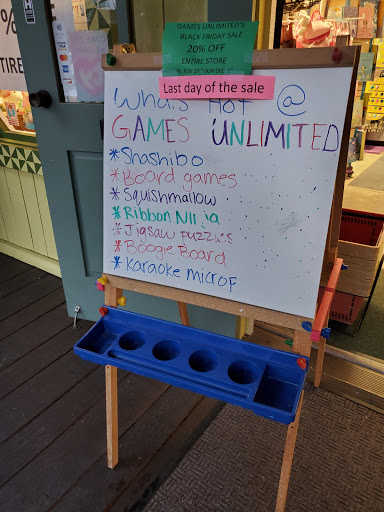 %
TIRE
GAMES UNLIMITED'S
BLACK FRIDAY SALE
20% OFF
ENTIRE STORE
Last day of the sale
What's HOT @
GAMES UNLIMITED
*Shashibo
*Board games
*Squishmallow
*Ribbon Ninja
*Jigsaw puzzles
*Boogie Board
*Karaoke microp